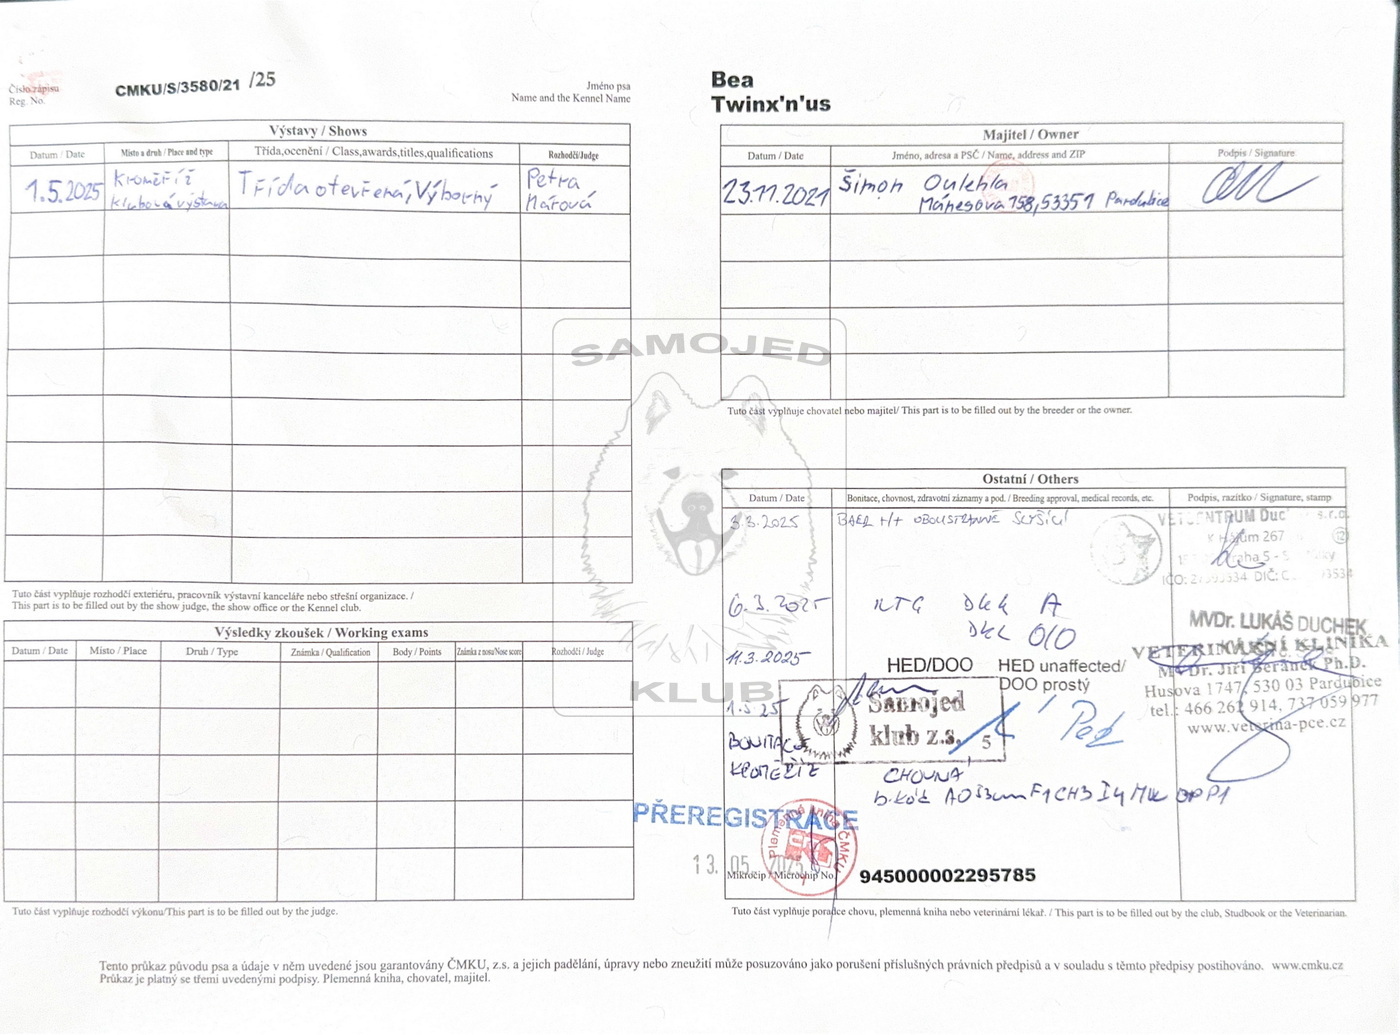 Číslo zápisu
Reg. No.
CMKU/S/3580/21 /25
Jméno psa
Name and the Kennel Name
Bea
Twinx'n'us
Výstavy / Shows
Datum / Date
Místo a druh / Place and type
Třída,ocenění / Class,awards,titles,qualifications
Rozhodčí/Judge
1.5.2025
Kroměříž
Klubová výstava
Třída otevřená, Výborný
Petra
Márová
Tuto část vyplňuje rozhodčí exteriéru, pracovník výstavní kanceláře nebo střešní organizace. /
This part is to be filled out by the show judge, the show office or the Kennel club.
Výsledky zkoušek / Working exams
Datum / Date
Místo / Place
Druh / Type
Známka / Qualification
Body / Points
Známka z nosu/Nose score
Rozhodčí / Judge
Tuto část vyplňuje rozhodčí výkonu/This part is to be filled out by the judge.
Majitel / Owner
Datum / Date
Jméno, adresa a PSČ / Name, address and ZIP
Podpis / Signature
23.11.2021
Šimon Oulehla
Mánesova 758, 53351 Pardubice
Tuto část vyplňuje chovatel nebo majitel/ This part is to be filled out by the breeder or the owner.
SAMOJED
KLUB
Ostatní / Others
Datum / Date
Bonitace, chovnost, zdravotní záznamy a pod. / Breeding approval, medical records, etc.
Podpis, razítko / Signature, stamp
3.3.2025
BAER +/+ OBOUSTRANNĚ SLYŠÍCÍ
VETCENTRUM Duc s.r.o.
267
Praha 5 -
IČO: DIČ:
6.3.2025
RTG DKK A
DKL 0/0
MVDr. LUKÁŠ DUCHEK
11.3.2025
HED/DOO
HED unaffected/
DOO prostý
VETERINÁRNÍ KLINIKA
MVDr. Jiří Beránek Ph.D.
Husova 1747, 530 03 Pardubice
tel.: 466 262 914, 737 059 977
www.veterina-pce.cz
1.5.25
BONITACE
KROMĚŘÍŽ
Samojed
klub z.s.
5
CHOVNÁ
b.kód
PŘEREGISTRACE
Plemenná kniha ČMKU
13. 05. 2025
Mikročip / Microchip No.
945000002295785
Tuto část vyplňuje poradce chovu, plemenná kniha nebo veterinární lékař. / This part is to be filled out by the club, Studbook or the Veterinarian.
Tento průkaz původu psa a údaje v něm uvedené jsou garantovány ČMKU, z.s. a jejich padělání, úpravy nebo zneužití může posuzováno jako porušení příslušných právních předpisů a v souladu s těmto předpisy postihováno. www.cmku.cz
Průkaz je platný se třemi uvedenými podpisy. Plemenná kniha, chovatel, majitel.